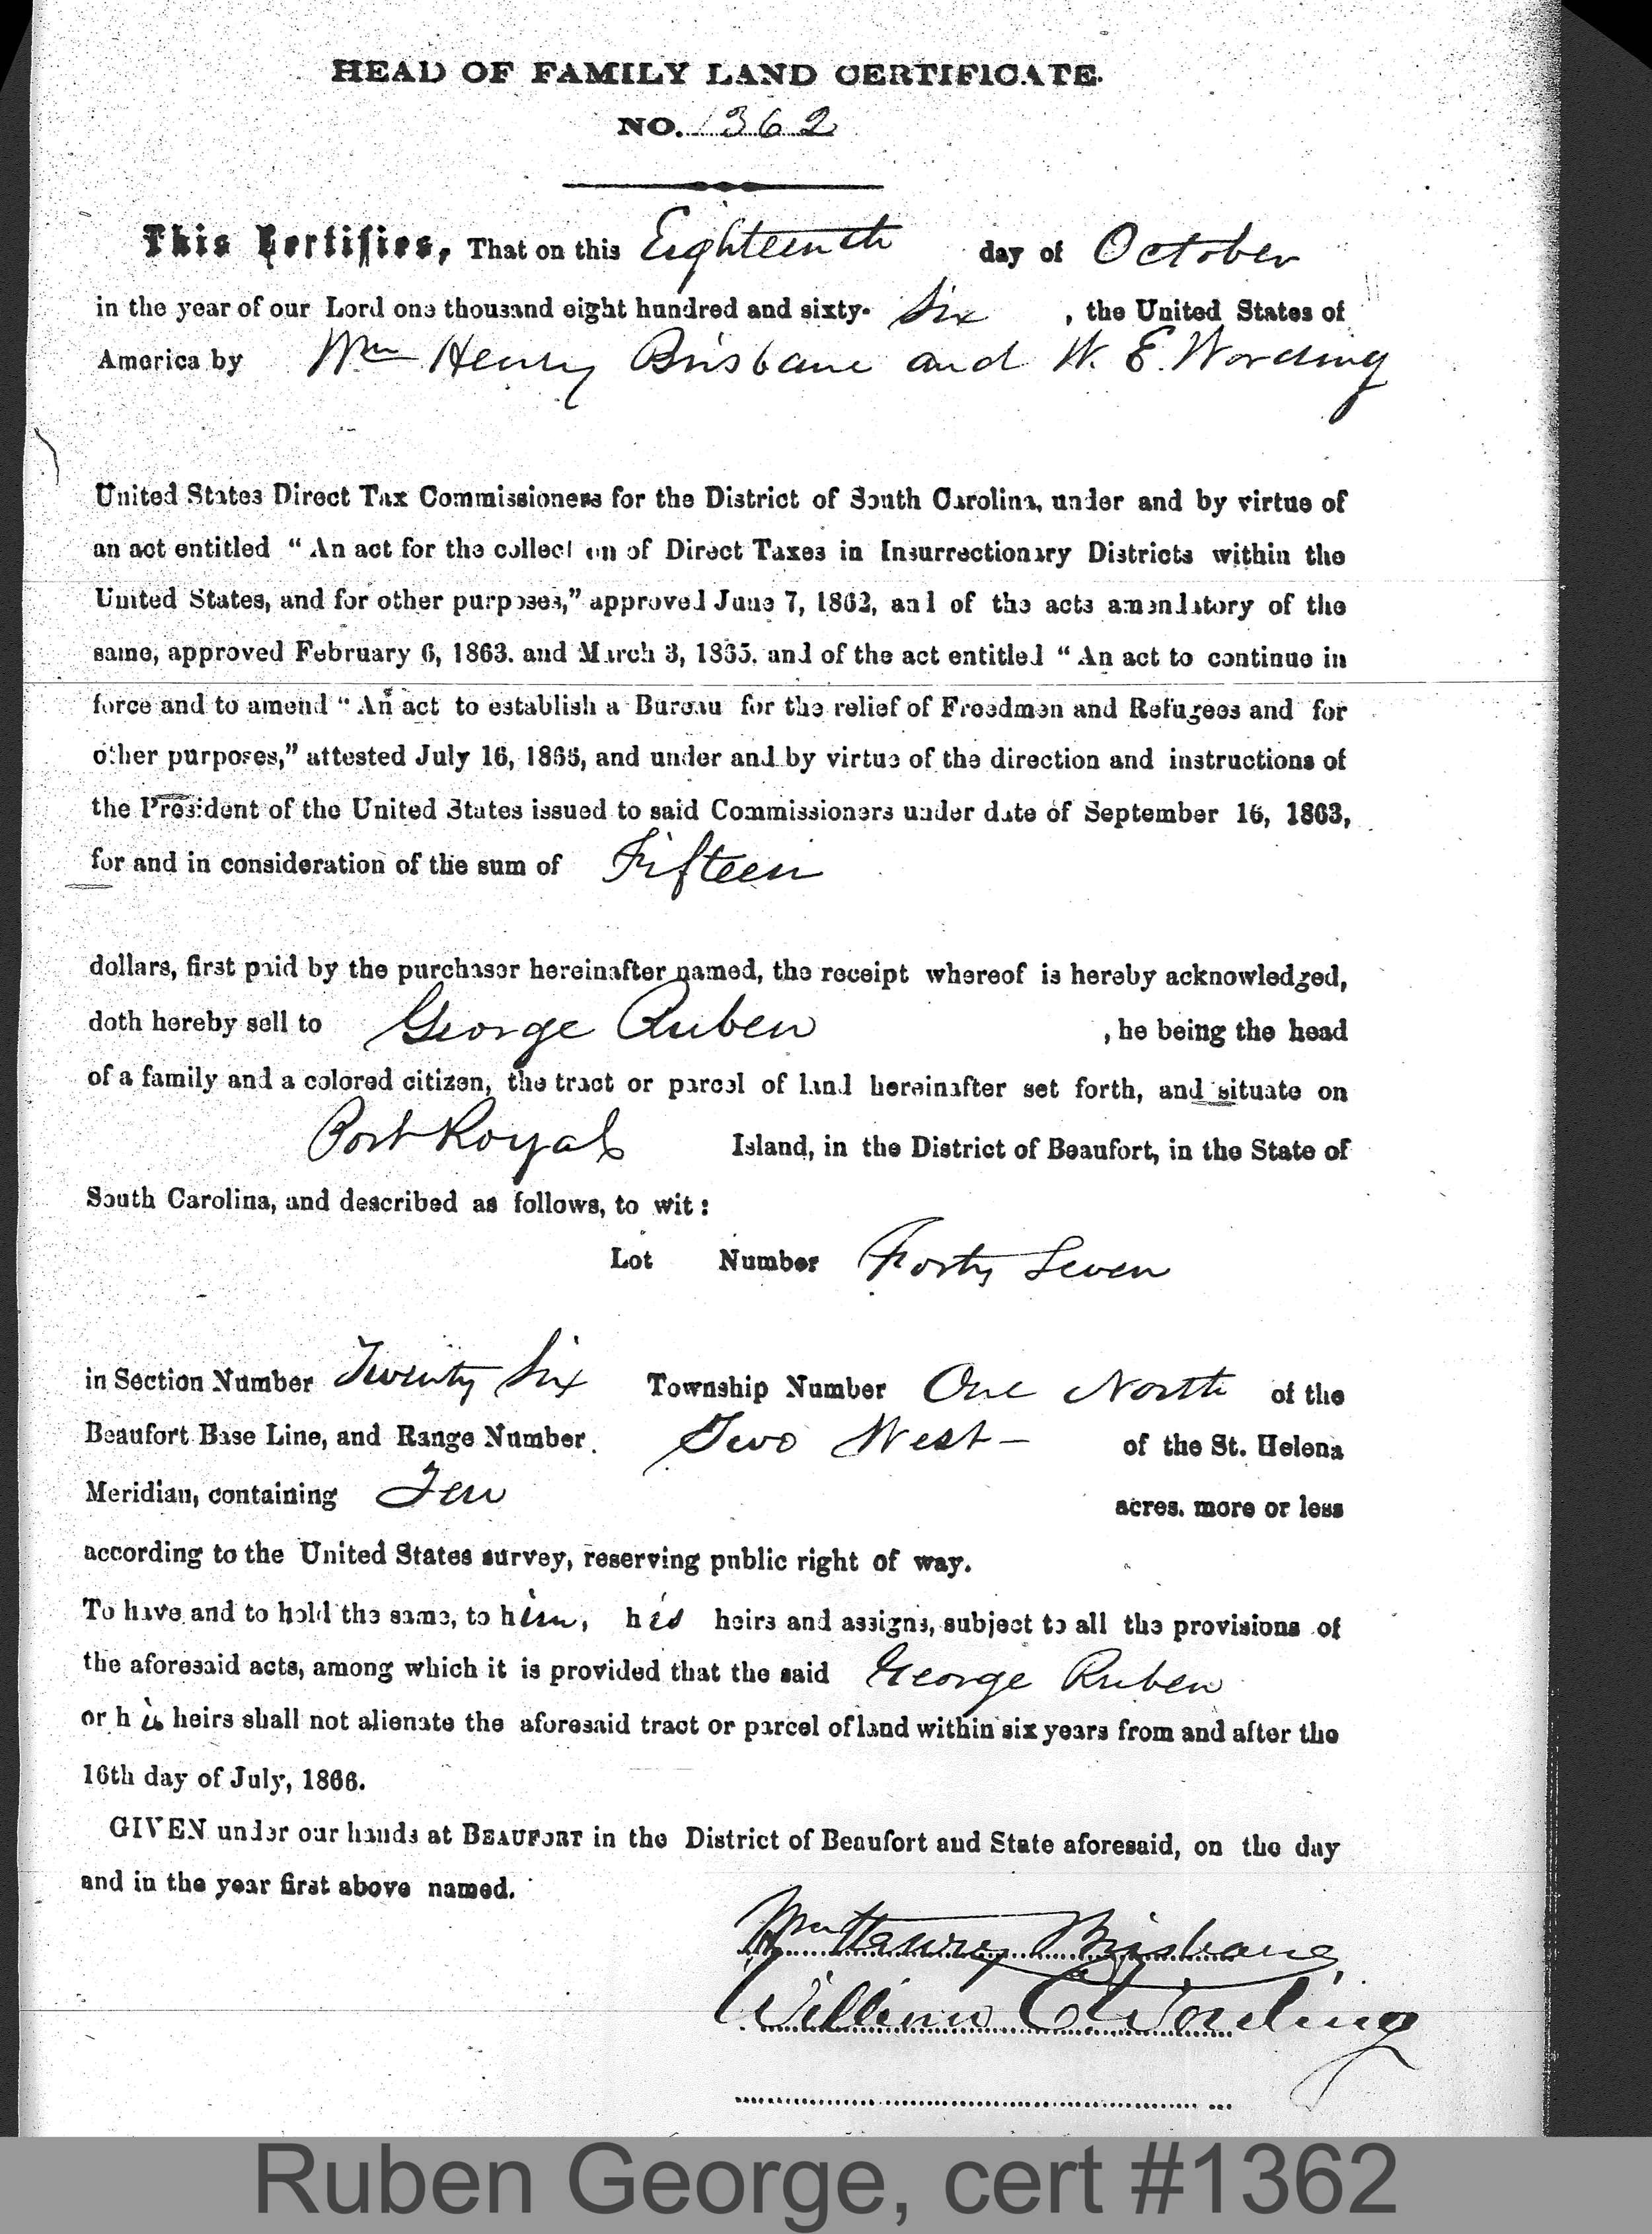 HEAD OF FAMILY LAND CERTIFICATE.
NO. 1362
This Certifies, That on this Eighteenth day of October
in the year of our Lord one thousand eight hundred and sixty- Six , the United States of
America by Wm Henry Brisbane and W. E. Wording
United States Direct Tax Commissioners for the District of South Carolina, under and by virtue of
an act entitled “ An act for the collection of Direct Taxes in Insurrectionary Districts within the
United States, and for other purposes,” approved June 7, 1862, and of the acts amendatory of the
same, approved February 6, 1863. and March 3, 1865. and of the act entitled “ An act to continue in
force and to amend “ An act to establish a Bureau for the relief of Freedmen and Refugees and for
other purposes,” attested July 16, 1866, and under and by virtue of the direction and instructions of
the President of the United States issued to said Commissioners under date of September 16, 1863,
for and in consideration of the sum of Fifteen
dollars, first paid by the purchaser hereinafter named, the receipt whereof is hereby acknowledged,
doth hereby sell to George Ruben , he being the head
of a family and a colored citizen, the tract or parcel of land hereinafter set forth, and situate on
Port Royal Island, in the District of Beaufort, in the State of
South Carolina, and described as follows, to wit :
Lot Number Forty Seven
in Section Number Twenty Six Township Number One North of the
Beaufort Base Line, and Range Number Two West – of the St. Helena
Meridian, containing Ten acres. more or less
according to the United States survey, reserving public right of way.
To have and to hold the same, to him, his heirs and assigns, subject to all the provisions of
the aforesaid acts, among which it is provided that the said George Ruben
or his heirs shall not alienate the aforesaid tract or parcel of land within six years from and after the
16th day of July, 1866.
GIVEN under our hands at BEAUFORT in the District of Beaufort and State aforesaid, on the day
and in the year first above named.
Wm Henry Brisbane
William E Wording
Ruben George, cert #1362